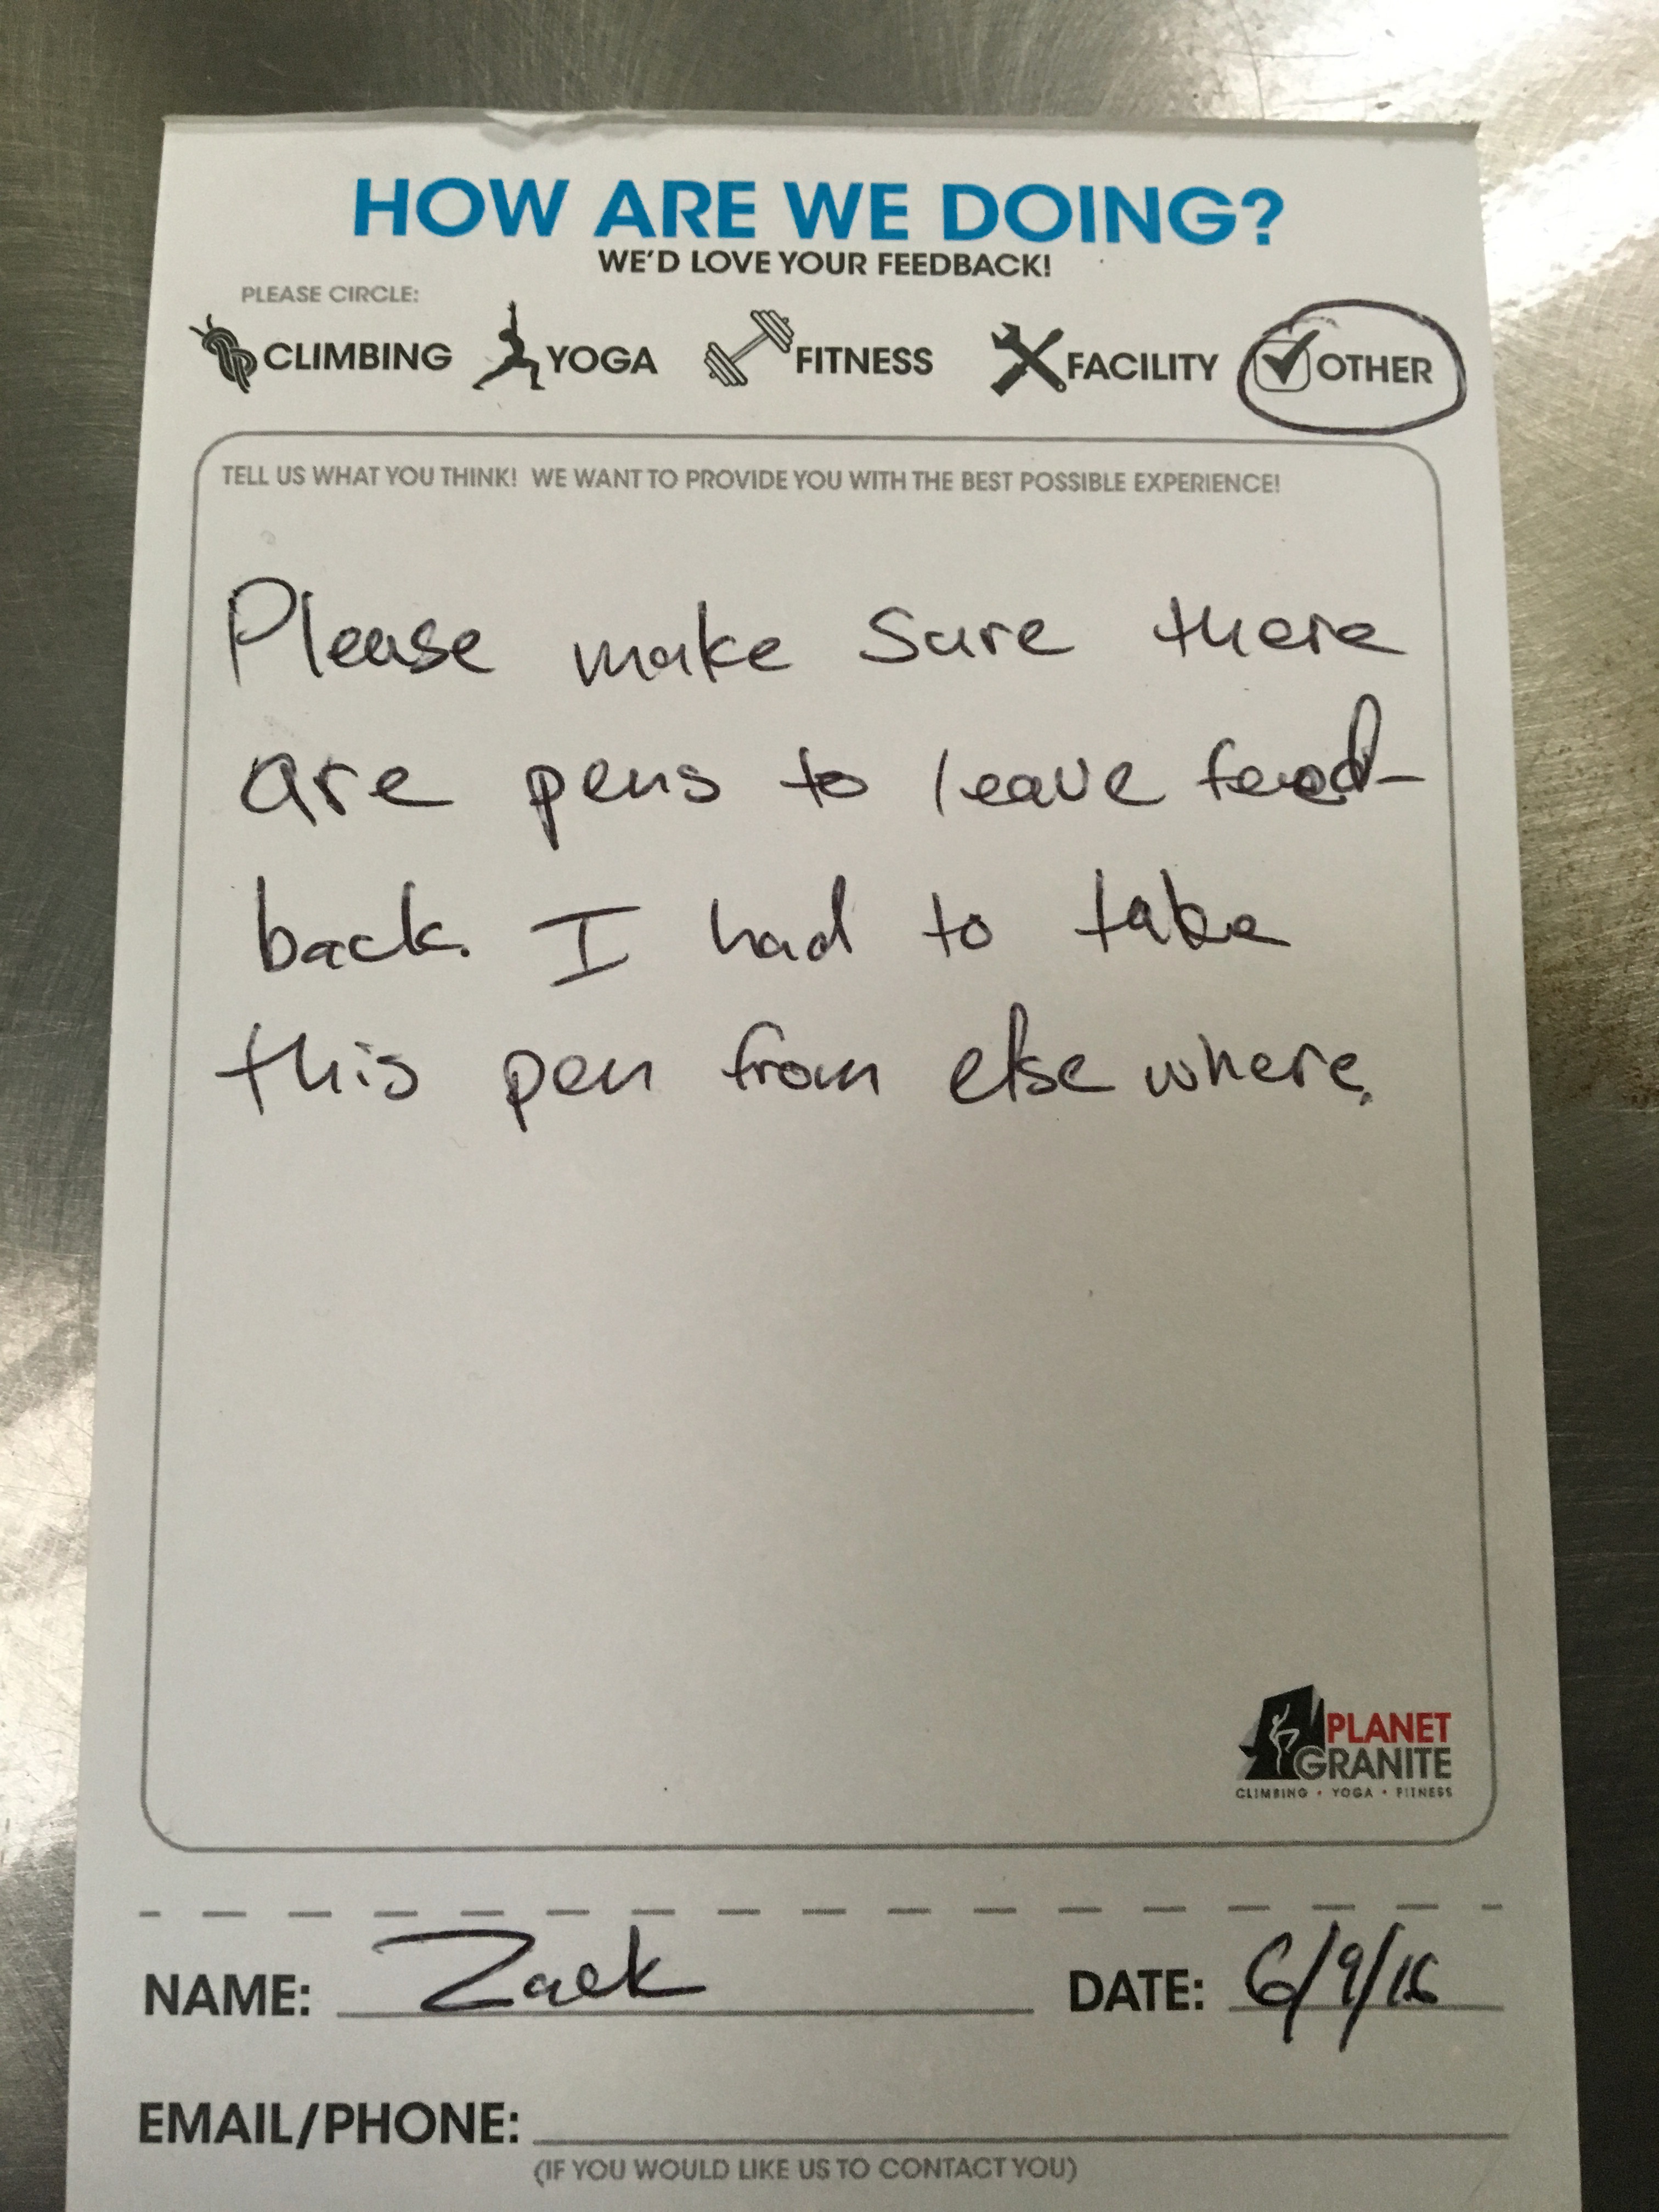 HOW ARE WE DOING?
WE'D LOVE YOUR FEEDBACK!
PLEASE CIRCLE:
CLIMBING YOGA FITNESS FACILITY OTHER
TELL US WHAT YOU THINK! WE WANT TO PROVIDE YOU WITH THE BEST POSSIBLE EXPERIENCE!
Please make sure there
are pens to leave feed-
back. I had to take
this pen from else where.
PLANET
GRANITE
CLIMBING • YOGA • FITNESS
NAME: Zack DATE: 6/9/16
EMAIL/PHONE:
(IF YOU WOULD LIKE US TO CONTACT YOU)